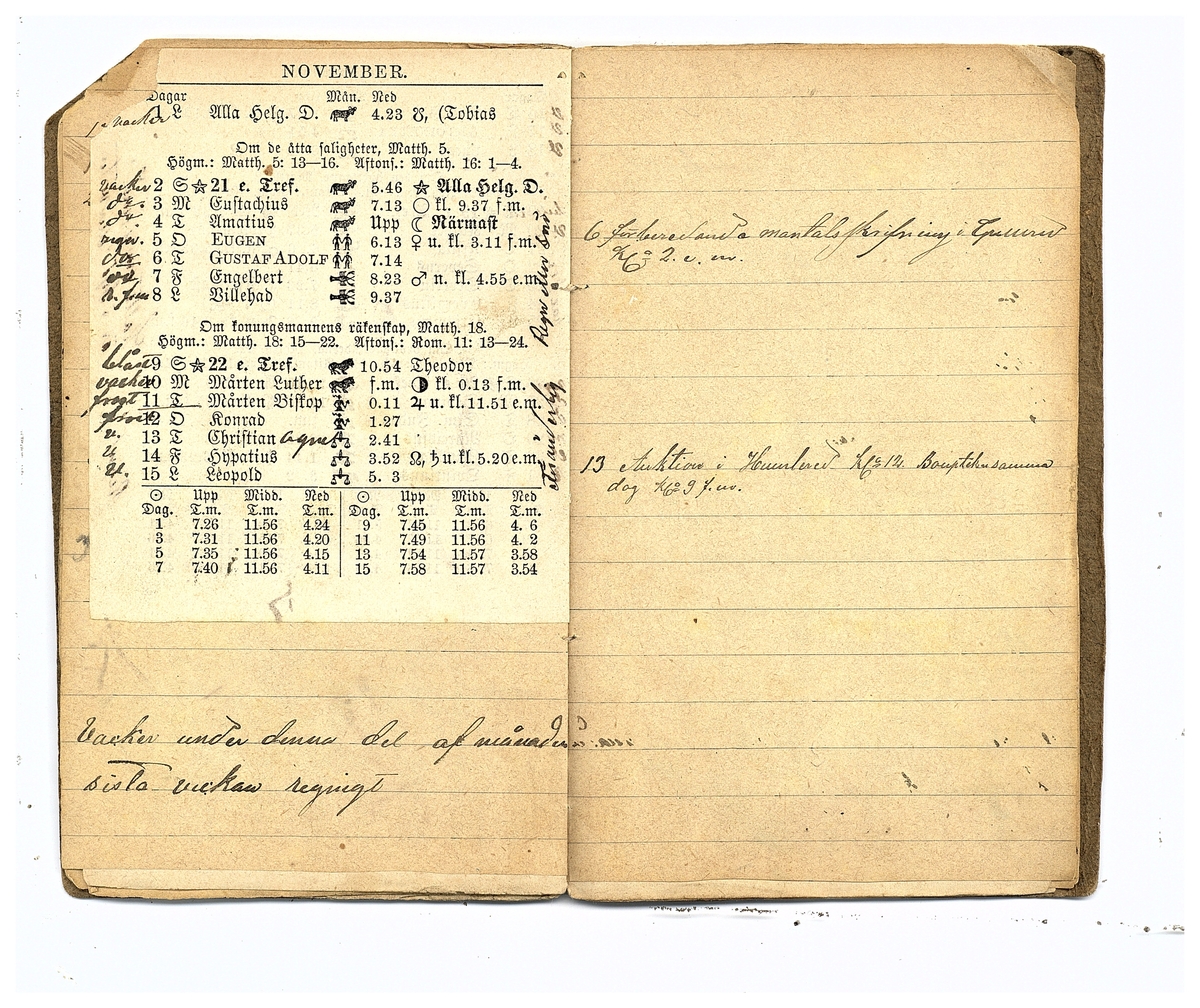 NOVEMBER.
Dagar Mån. Ned
1 L Alla Helg. D. 4.23 ☋, (Tobias
vacker
Om de åtta saligheter, Matth. 5.
Högm.: Matth. 5: 13—16. Aftons.: Matth. 16: 1—4.
vacker 2 S☆ 21 e. Tref. 5.46 ☆ Alla Helg. D.
do 3 M Eustachius 7.13 ○ kl. 9.37 f.m.
do 4 T Amatius Upp ☾ Närmast
regn. 5 O EUGEN 6.13 ♀ u. kl. 3.11 f.m.
do 6 T GUSTAF ADOLF 7.14
do 7 F Engelbert 8.23 ♂ n. kl. 4.55 e.m.
8 L Villehad 9.37
Regn eller Snö
Om konungsmannens räkenskap, Matth. 18.
Högm.: Matth. 18: 15—22. Aftons.: Rom. 11: 13—24.
blåst 9 S☆ 22 e. Tref. 10.54 Theodor
vacker 10 M Mårten Luther f.m. ◑ kl. 0.13 f.m.
frost 11 T Mårten Biskop 0.11 ♃ u. kl. 11.51 e.m.
frost 12 O Konrad 1.27
v. 13 T Christian Agnes 2.41
v. 14 F Hypatius 3.52 ☊, ♄ u. kl. 5.20 e.m.
v. 15 L Leopold 5. 3
ostadig
☉ Upp Midd. Ned ☉ Upp Midd. Ned
Dag. T.m. T.m. T.m. Dag. T.m. T.m. T.m.
1 7.26 11.56 4.24 9 7.45 11.56 4. 6
3 7.31 11.56 4.20 11 7.49 11.56 4. 2
5 7.35 11.56 4.15 13 7.54 11.57 3.58
7 7.40 11.56 4.11 15 7.58 11.57 3.54
Vacker under denna del af månaden
sista veckan regnigt
6 förberedande mantalsskrifning i
Kl 2. e. m.
13 Auktion i Kl 12. samma
dag Kl 9 f. m.